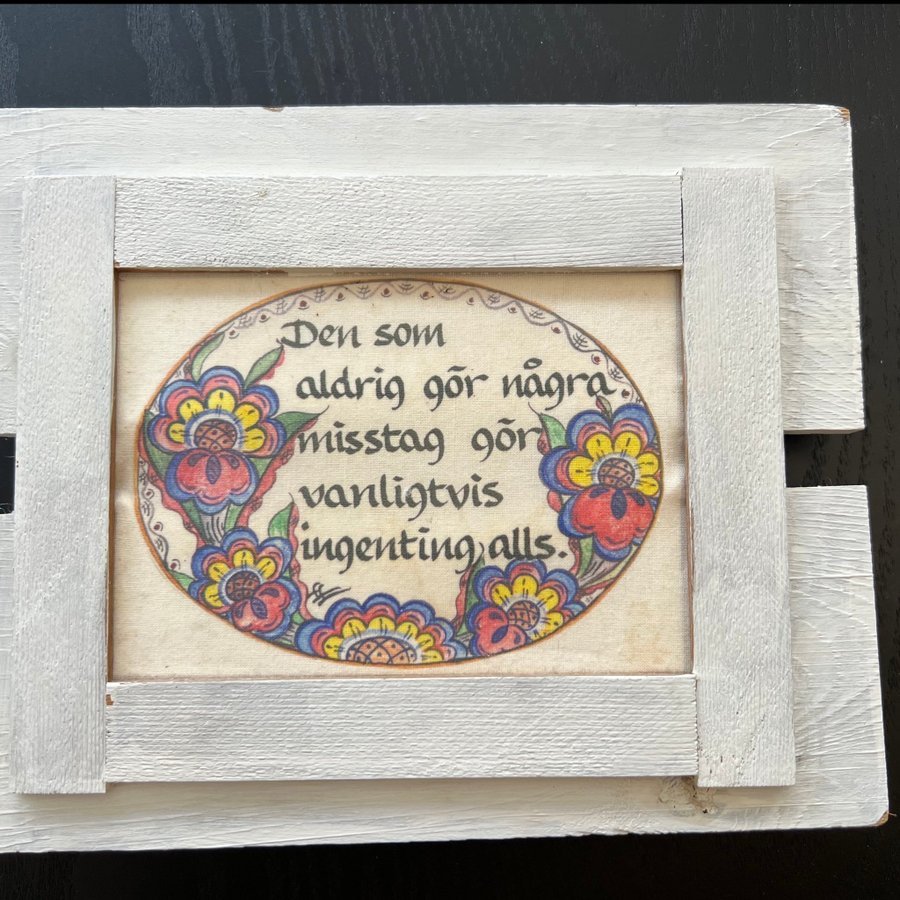 Den som
aldrig gör några
misstag gör
vanligtvis
ingenting alls.